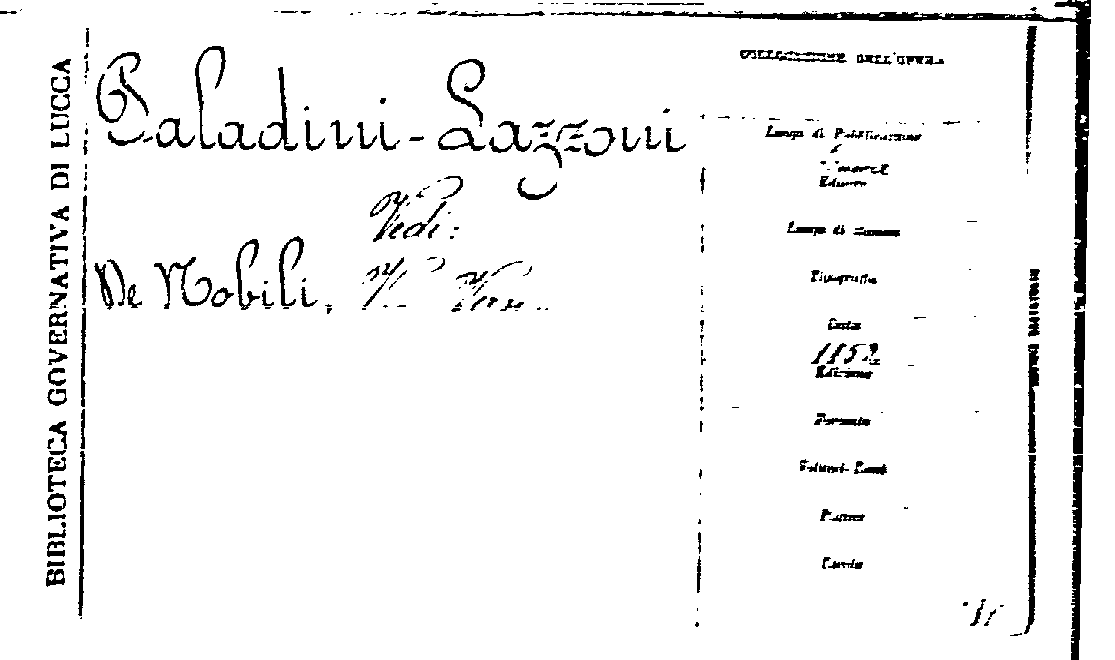 BIBLIOTECA GOVERNATIVA DI LUCCA
Paladini-Lazzoni
Vedi:
De Nobili,
COLLOCAZIONE DELL'OPERA
Luogo di Pubblicazione
Editore
Luogo di Stampa
Tipografia
Data
1852
Edizione
Formato
Volumi-Parti
Pagine